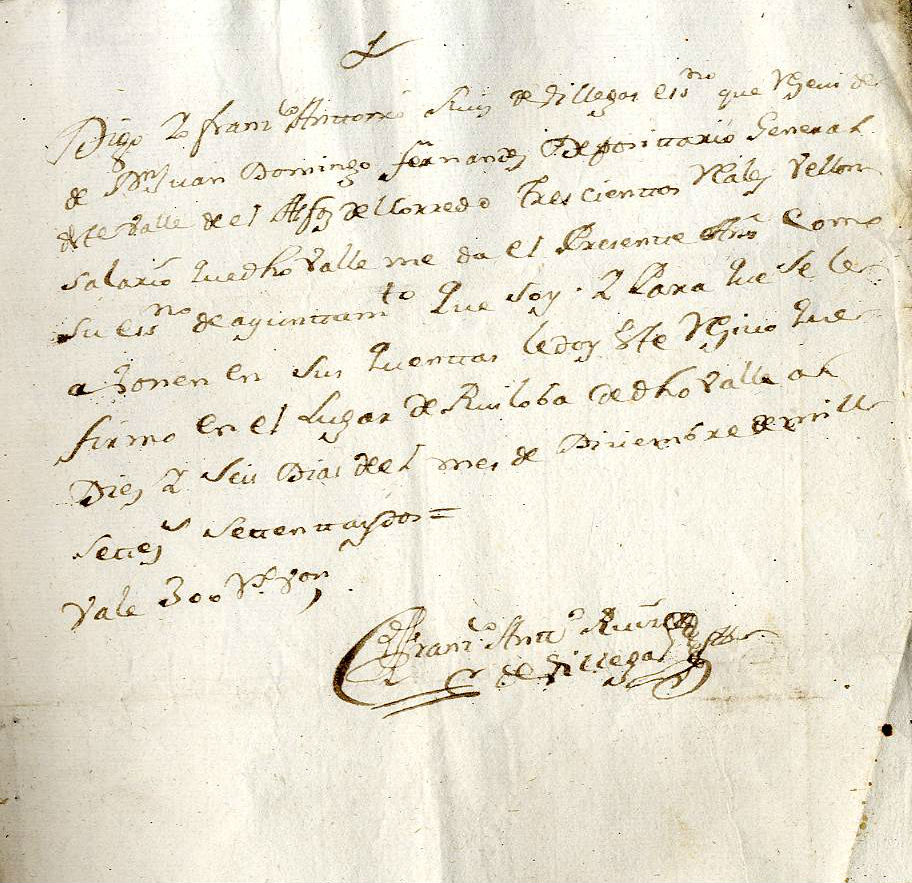 Digo Yo Franco Anttonio Ruiz de Villegas essno que Rzevi de
de Dn Juan Domingo Fernandez Deposittario General
deste Valle de el Alfoz de Lloredo Trescienttos Reales Vellon
Salario que dho Valle me da el Presentte Año Como
su essno de ayunttamto que soy. Y Para que se le
abonen en sus quenttas le doy este Rzivo que
firmo en el Lugar de Ruiloba de dho Valle a
Diez y Seis Dias de el mes de Diziembre de mill
settezs settenttaydos =
Vale 300 Rs Von
Franco Antto Ruiz
de Villegas